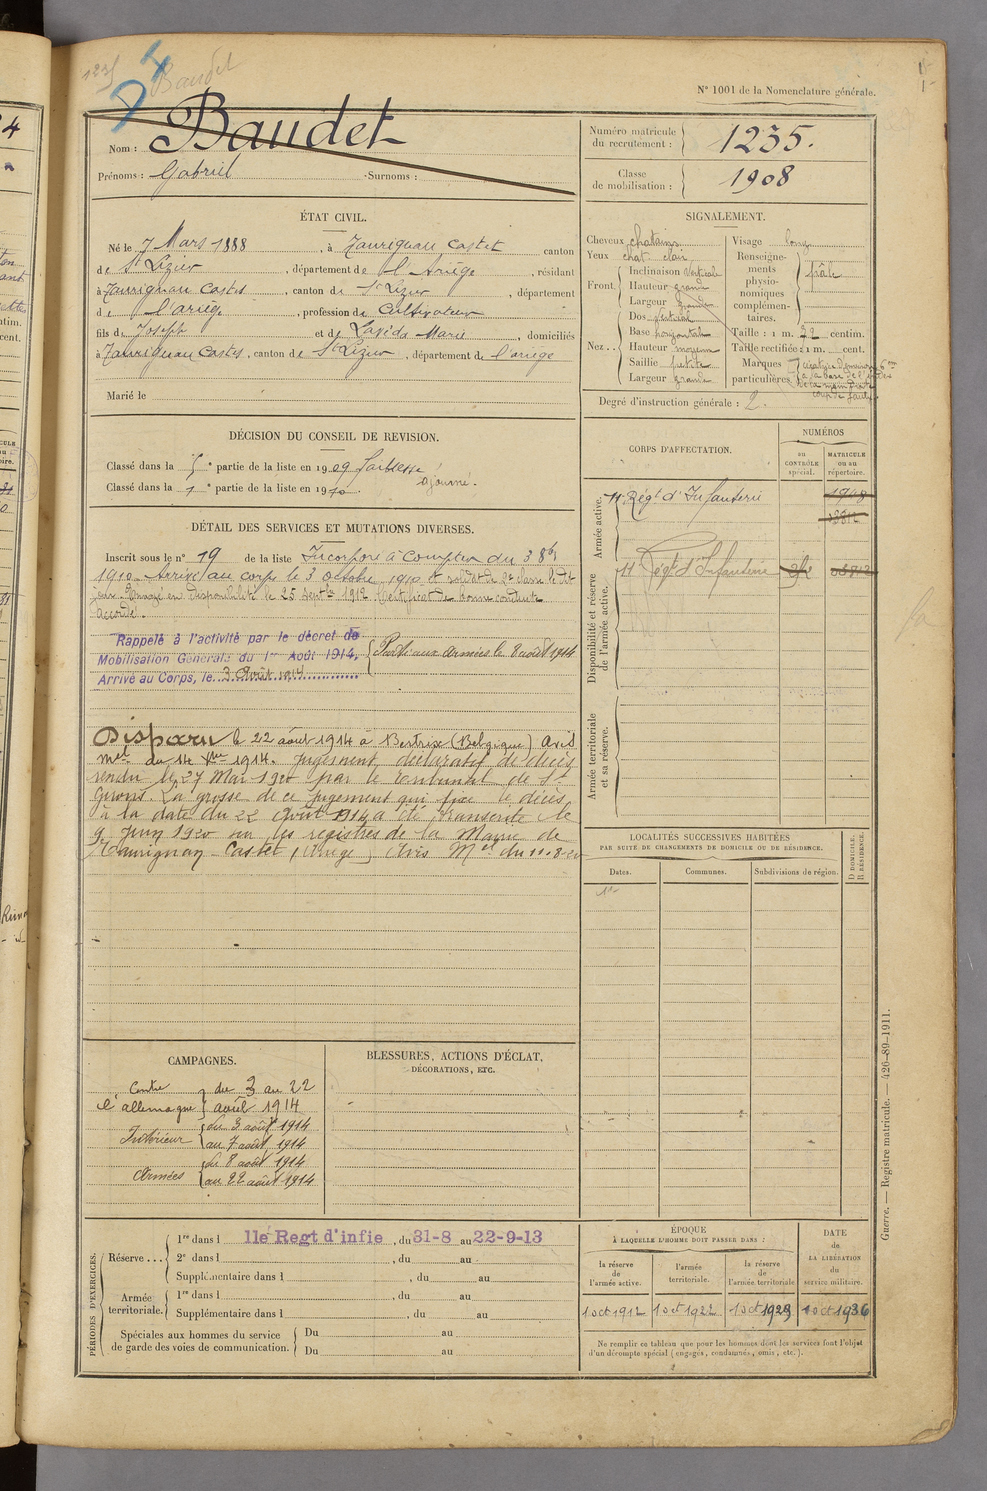 1235 Baudet
N° 1001 de la Nomenclature générale.
Nom : Baudet
Prénoms : Gabriel Surnoms :
Numéro matricule du recrutement : 1235.
Classe de mobilisation : 1908
ÉTAT CIVIL.
Né le 7 Mars 1888, à Taurignan Castet canton
de St Lizier, département de l'Ariège, résidant
à Taurignan Castet, canton de St Lizier, département
de l'ariège, profession de Cultivateur
fils de Joseph et de Marie, domiciliés
à Taurignan Castet, canton de St Lizier, département de l'ariège
Marié le
SIGNALEMENT.
Cheveux chatains
Yeux chat. clair
Front. Inclinaison Verticale
Hauteur grande
Largeur grande
Nez.. Dos vertical
Base horizontale
Hauteur moyenne
Saillie petite
Largeur grande
Visage long
Renseignements physionomiques complémentaires.
Taille : 1 m. centim.
Taille rectifiée : 1 m. cent.
Marques particulières cicatrice d'environ 6 cm
à la base de
de la main droite
coup de faulx
Degré d'instruction générale : 2.
DÉCISION DU CONSEIL DE REVISION.
Classé dans la 5e partie de la liste en 1909 faiblesse
ajourné.
Classé dans la 1e partie de la liste en 1910.
CORPS D'AFFECTATION.
NUMÉROS
au CONTRÔLE spécial.
MATRICULE ou au répertoire.
Armée active.
11 Régt d'Infanterie
Disponibilité et réserve de l'armée active.
11 Régt d'Infanterie
Armée territoriale et sa réserve.
DÉTAIL DES SERVICES ET MUTATIONS DIVERSES.
Inscrit sous le n° 19 de la liste Incorporé à Compter du 3 8bre
1910. Arrivé au corps le 3 octobre 1910 et soldat de 2e classe le dit
jour. Envoyé en disponibilité le 25 Septbre 1912. Certificat de bonne conduite
accordé.
Rappelé à l'activité par le décret de
Mobilisation Générale du 1er Août 1914.
Arrivé au Corps, le 3 Août 1914
Parti aux armées le 8 août 1914
Disparu le 22 août 1914 à Bertrix (Belgique) avis
mel du 14 Xbre 1914. Jugement déclaratif de décès
rendu le 27 Mai 1920 par le tribunal de St
Girons. La grosse de ce jugement qui fixe le décès
à la date du 22 Août 1914 a été transcrite le
9 Juin 1920 sur les registres de la Mairie de
Taurignan Castet (Ariège) Avis Mel du 11-8-20
LOCALITÉS SUCCESSIVES HABITÉES
PAR SUITE DE CHANGEMENTS DE DOMICILE OU DE RÉSIDENCE.
Dates.
Communes.
Subdivisions de région.
D DOMICILE. R RÉSIDENCE.
CAMPAGNES.
Contre l'allemagne du 3 au 22 août 1914
Intérieur du 3 août 1914
au 7 août 1914
Armées du 8 août 1914
au 22 août 1914
BLESSURES, ACTIONS D'ÉCLAT,
DÉCORATIONS, ETC.
PÉRIODES D'EXERCICES.
Réserve... 1re dans l 11e Regt d'infie, du 31-8 au 22-9-13
2e dans l , du au
Supplémentaire dans l , du au
Armée territoriale. 1re dans l , du au
Supplémentaire dans l , du au
Spéciales aux hommes du service de garde des voies de communication. Du au
Du au
ÉPOQUE
À LAQUELLE L'HOMME DOIT PASSER DANS :
la réserve de l'armée active.
l'armée territoriale.
la réserve de l'armée territoriale
DATE de LA LIBÉRATION du service militaire.
1 oct 1912
1 oct 1922
1 oct 1929
1 oct 1936
Ne remplir ce tableau que pour les hommes dont les services font l'objet
d'un décompte spécial (engagés, condamnés, omis, etc.).
Guerre. — Registre matricule. — 426-89-1911.